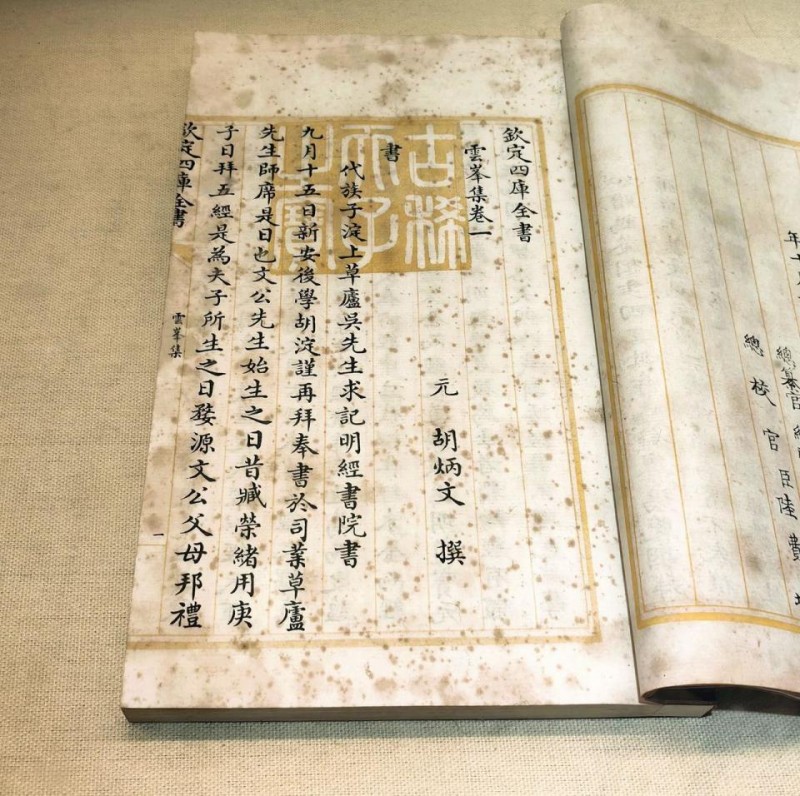 年十
總纂官
總校官臣陸費
欽定四庫全書
雲峯集卷一
元 胡炳文 撰
書
代族子淀上草廬吳先生求記明經書院書
九月十五日新安後學胡淀謹再拜奉書於司業草廬
先生師席是日也文公先生始生之日昔臧榮緒用庚
子日拜五經是為夫子所生之日婺源文公父母邦禮
欽定四庫全書
雲峯集
一
古稀天子之寶